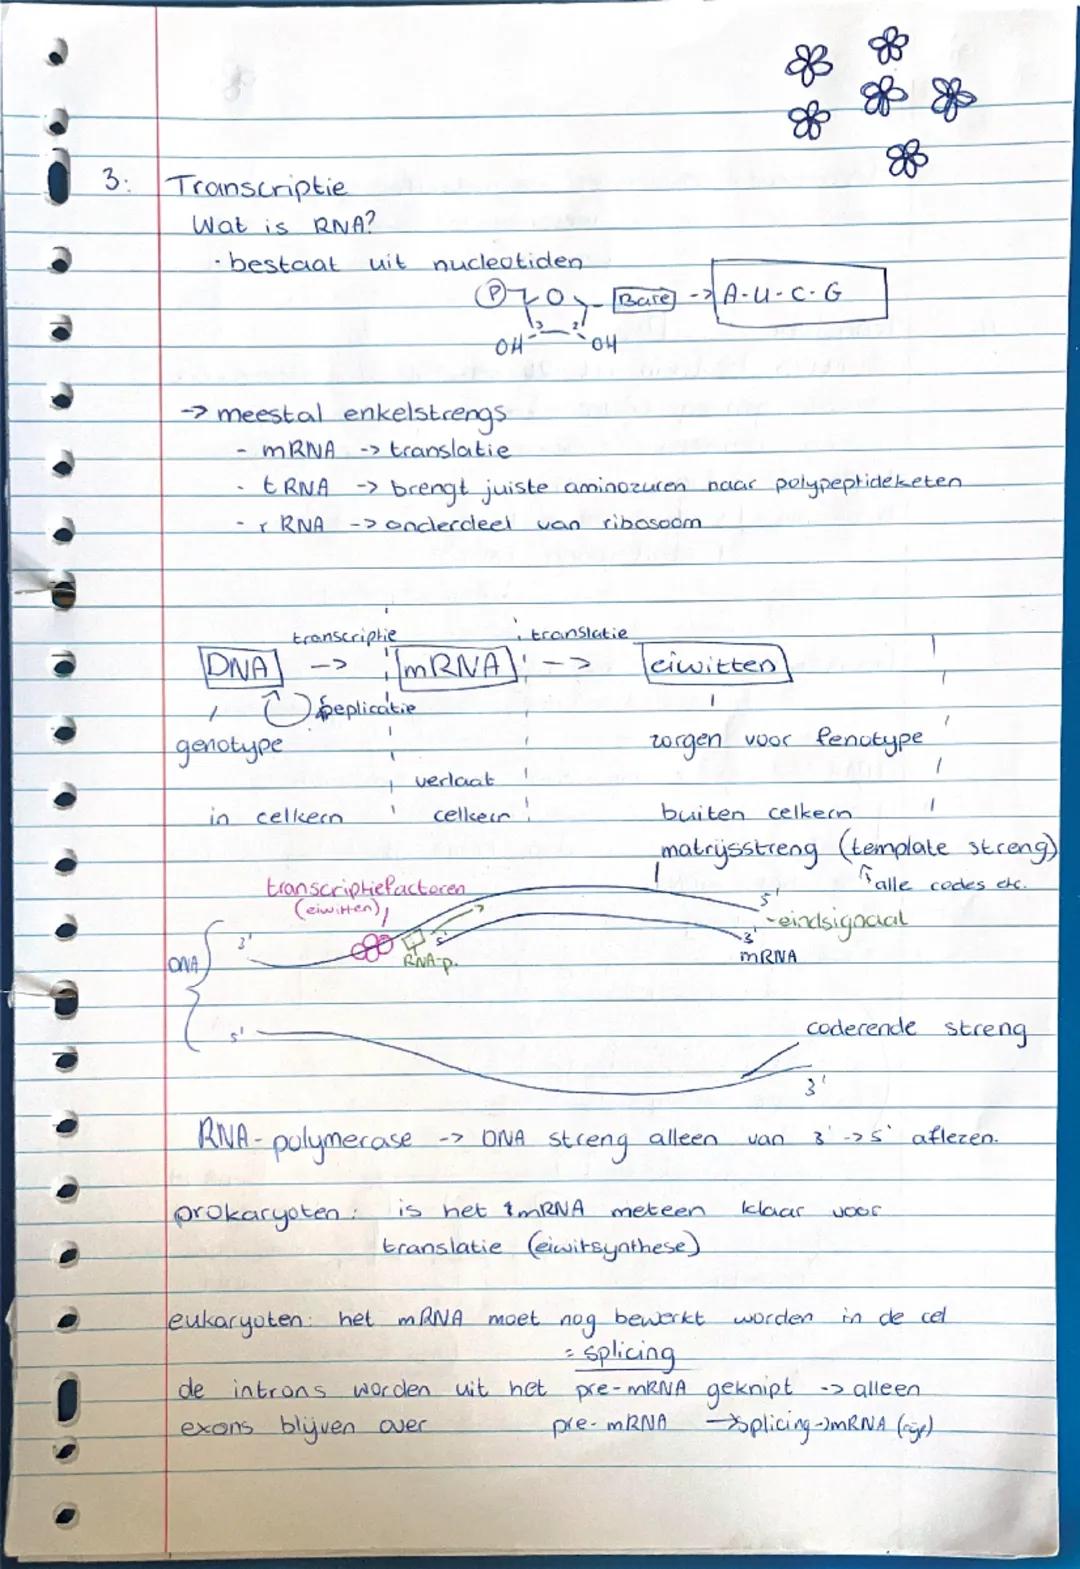 3: Transcriptie
Wat is RNA?
· bestaat uit nucleotiden
P O Base -> A-U-C-G
3 2
OH OH
-> meestal enkelstrengs
- mRNA -> translatie
- tRNA -> brengt juiste aminozuren naar polypeptideketen
- rRNA -> onderdeel van ribosoom
transcriptie translatie
DNA -> mRNA -> eiwitten
replicatie
genotype zorgen voor fenotype
verlaat
in celkern celkern buiten celkern
matrijsstreng (template streng)
transcriptiefactoren ↑ alle codes etc.
(eiwitten) 5'
- eindsignaal
3' 5' 3'
DNA RNA-p. mRNA
coderende streng
5'
3'
RNA-polymerase -> DNA streng alleen van 3' -> 5' aflezen.
prokaryoten: is het mRNA meteen klaar voor
translatie (eiwitsynthese)
eukaryoten: het mRNA moet nog bewerkt worden in de cel
= splicing
de introns worden uit het pre-mRNA geknipt -> alleen
exons blijven over pre-mRNA -> splicing -> mRNA (rijp)